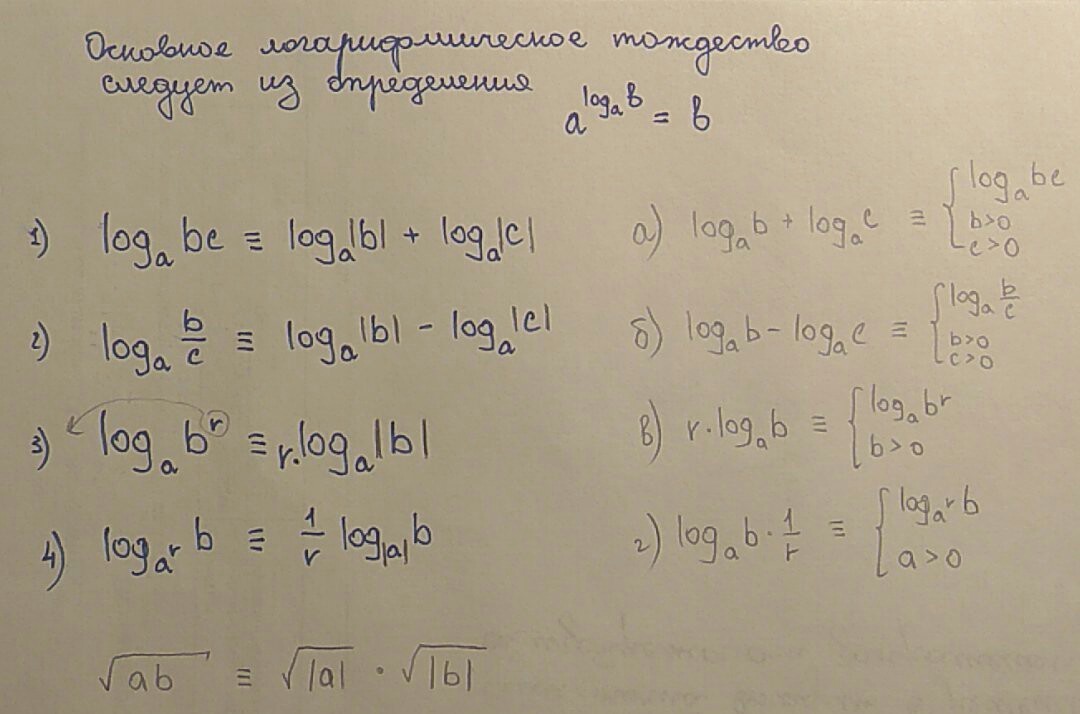 Основное логарифмическое тождество
следует из определения
a^{log_a b} = b
1) log_a bc ≡ log_a|b| + log_a|c|
а) log_a b + log_a c ≡ { log_a bc
b>0
c>0
2) log_a b/c ≡ log_a|b| - log_a|c|
б) log_a b - log_a c ≡ { log_a b/c
b>0
c>0
3) log_a b^r ≡ r·log_a|b|
в) r·log_a b ≡ { log_a b^r
b>0
4) log_{a^r} b ≡ 1/r log_{|a|} b
г) log_a b · 1/r ≡ { log_{a^r} b
a>0
√(ab) ≡ √|a| · √|b|